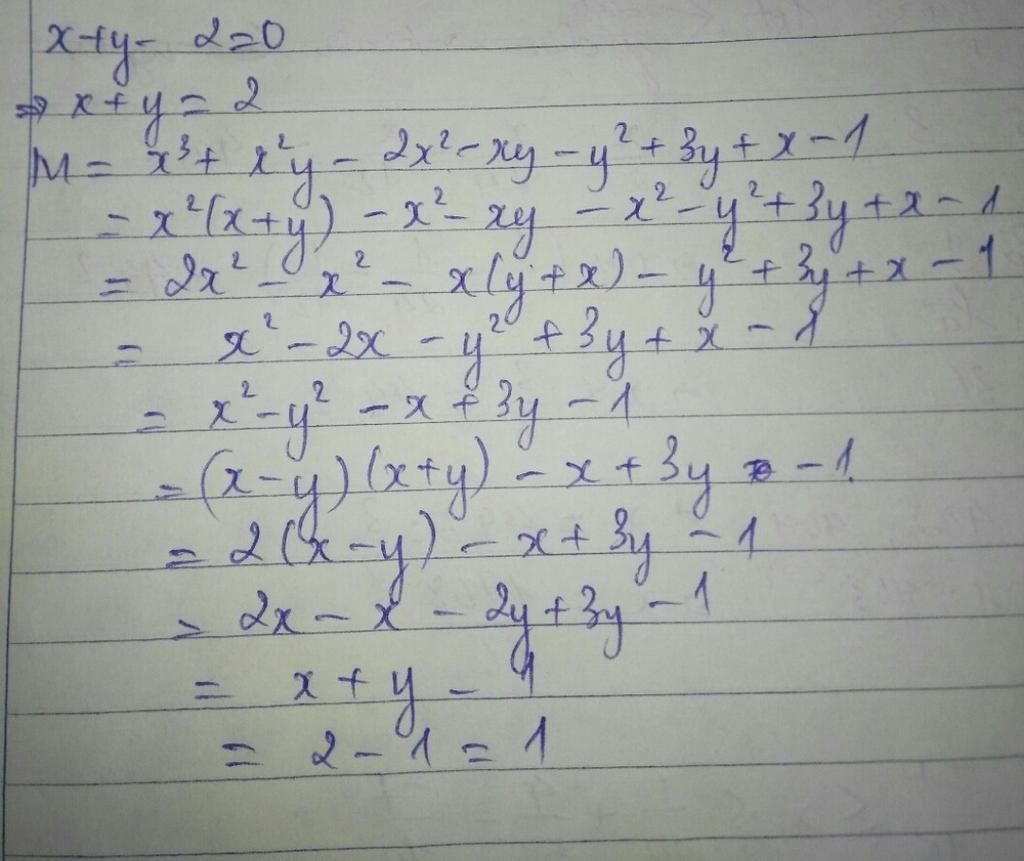 x+y- 2=0
⇒ x+y = 2
M = x³ + x²y - 2x² - xy - y² + 3y + x - 1
= x²(x+y) - x² - xy - x² - y² + 3y + x - 1
= 2x² - x² - x(y+x) - y² + 3y + x - 1
= x² - 2x - y² + 3y + x - 1
= x² - y² - x + 3y - 1
= (x-y)(x+y) - x + 3y - 1.
= 2(x-y) - x + 3y - 1
= 2x - x - 2y + 3y - 1
= x + y - 1
= 2 - 1 = 1